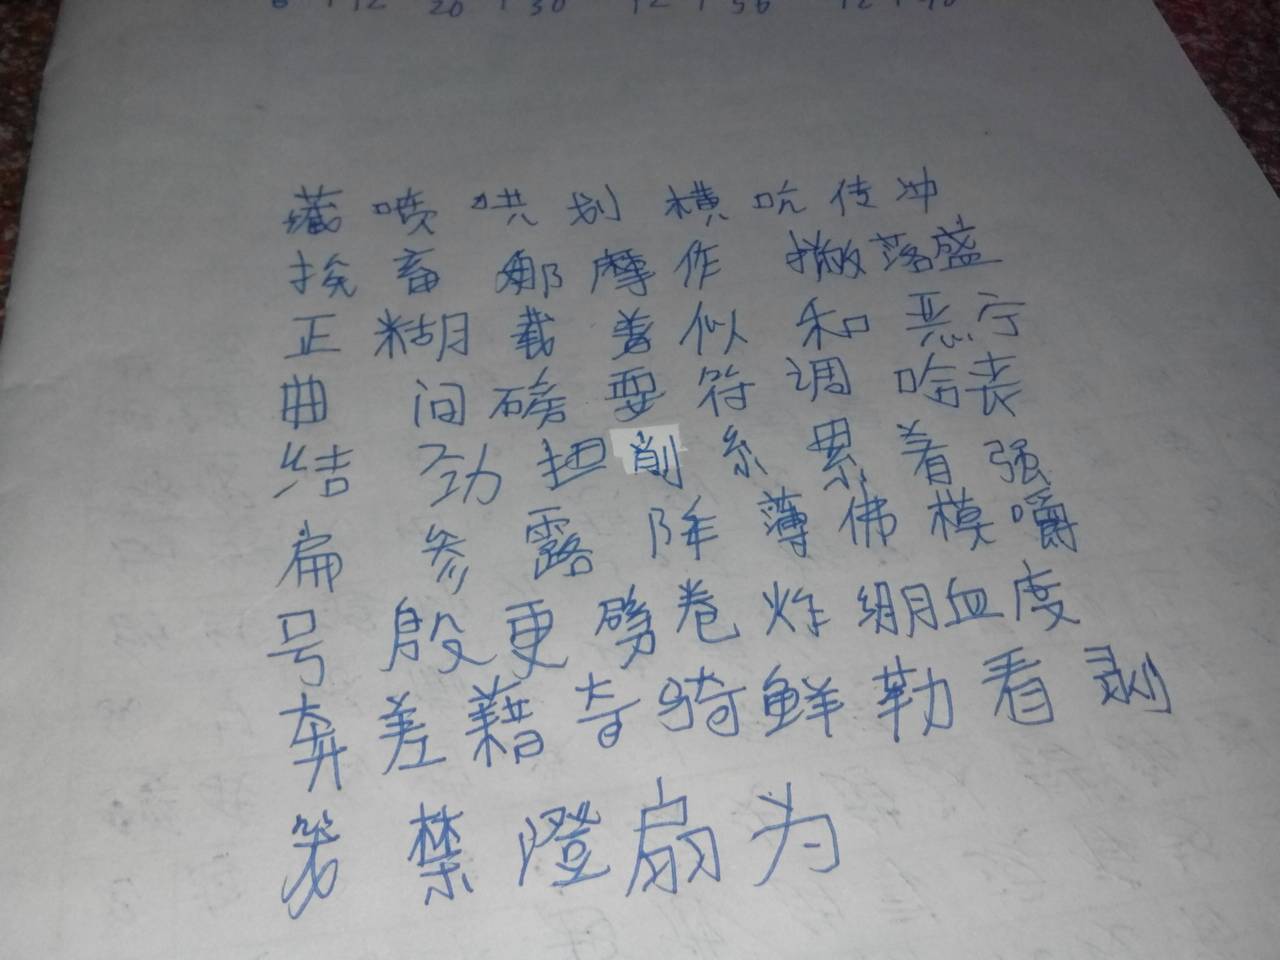 藏 喷 哄 划 横 吭 传 冲
挨 畜 那 摩 作 撒 落 盛
正 糊 载 着 似 和 恶 宁
曲 间 磅 耍 符 调 哈 丧
结 劲 担 削 系 累 着 强
扁 参 露 降 薄 佛 模 嚼
号 殷 更 劈 卷 炸 绷 血 度
奔 差 藉 奇 骑 鲜 勒 看 剥
禁 澄 扇 为